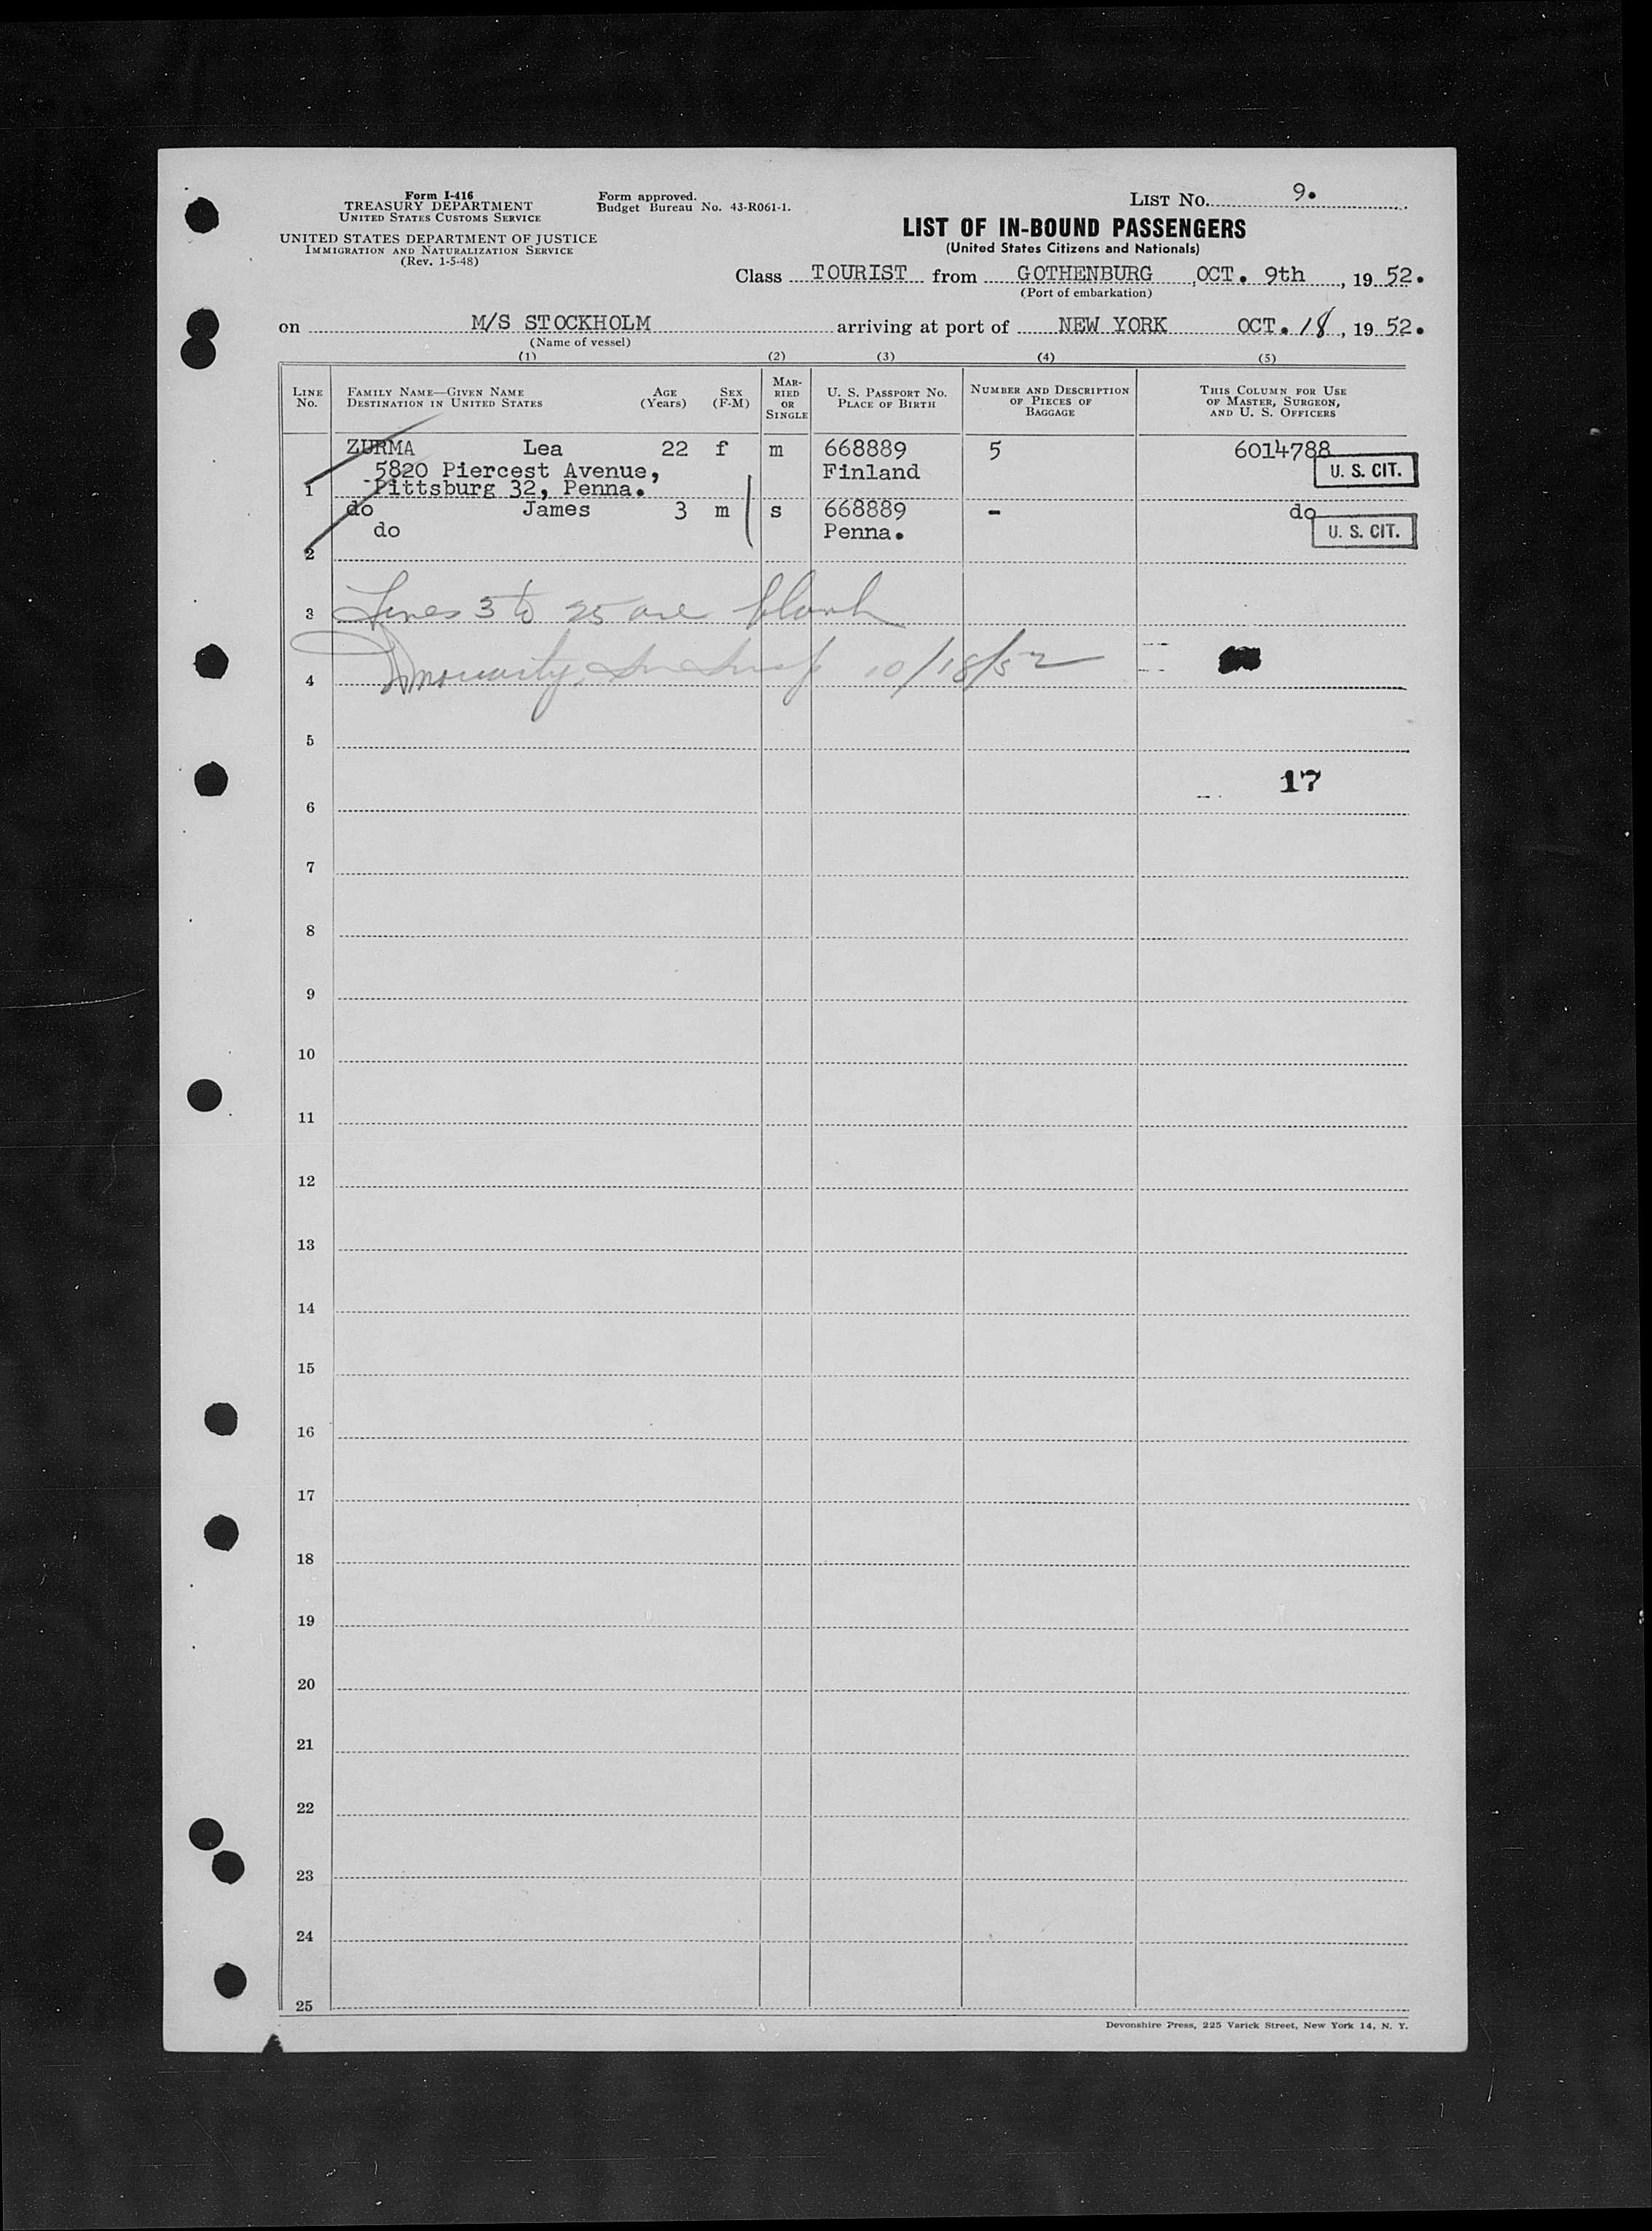 Form I-416
TREASURY DEPARTMENT
UNITED STATES CUSTOMS SERVICE
UNITED STATES DEPARTMENT OF JUSTICE
IMMIGRATION AND NATURALIZATION SERVICE
(Rev. 1-5-48)
Form approved.
Budget Bureau No. 43-R061-1.
LIST No. 9.
LIST OF IN-BOUND PASSENGERS
(United States Citizens and Nationals)
Class TOURIST from GOTHENBURG, OCT. 9th, 19 52.
(Port of embarkation)
on M/S STOCKHOLM arriving at port of NEW YORK OCT. 18, 19 52.
(Name of vessel)
(1) (2) (3) (4) (5)
LINE No.
FAMILY NAME—GIVEN NAME
DESTINATION IN UNITED STATES
AGE (Years)
SEX (F-M)
MARRIED OR SINGLE
U. S. PASSPORT No.
PLACE OF BIRTH
NUMBER AND DESCRIPTION OF PIECES OF BAGGAGE
THIS COLUMN FOR USE OF MASTER, SURGEON, AND U. S. OFFICERS
ZURMA Lea 22 f m 668889 5 6014788
5820 Piercest Avenue, Finland U. S. CIT.
1 Pittsburg 32, Penna.
do James 3 m s 668889 - do
do Penna. U. S. CIT.
2
3 Lines 3 to 25 are blank
4 10/18/52
5
17
6
7
8
9
10
11
12
13
14
15
16
17
18
19
20
21
22
23
24
25
Devonshire Press, 225 Varick Street, New York 14, N. Y.